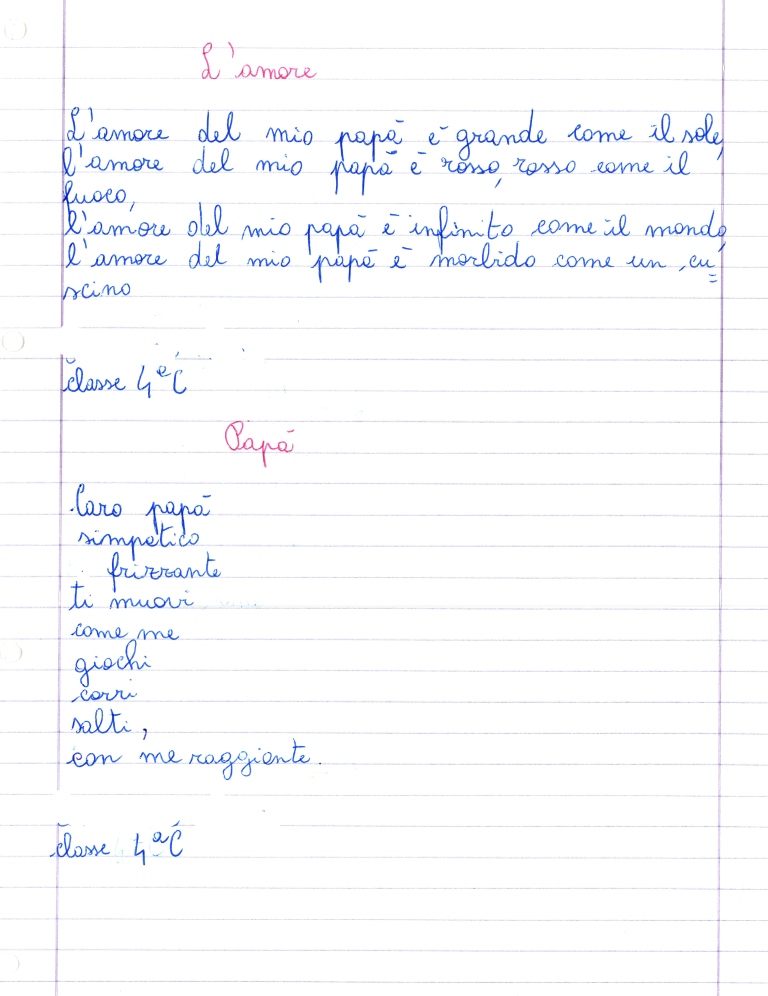 L'amore
L'amore del mio papà è grande come il sole,
l'amore del mio papà è rosso, rosso come il
fuoco,
l'amore del mio papà è infinito come il mondo,
l'amore del mio papà è morbido come un cu=
scino
classe 4ª C
Papà
Caro papà
simpatico
frizzante
ti muovi
come me
giochi
corri
salti,
con me raggiante.
classe 4ª C